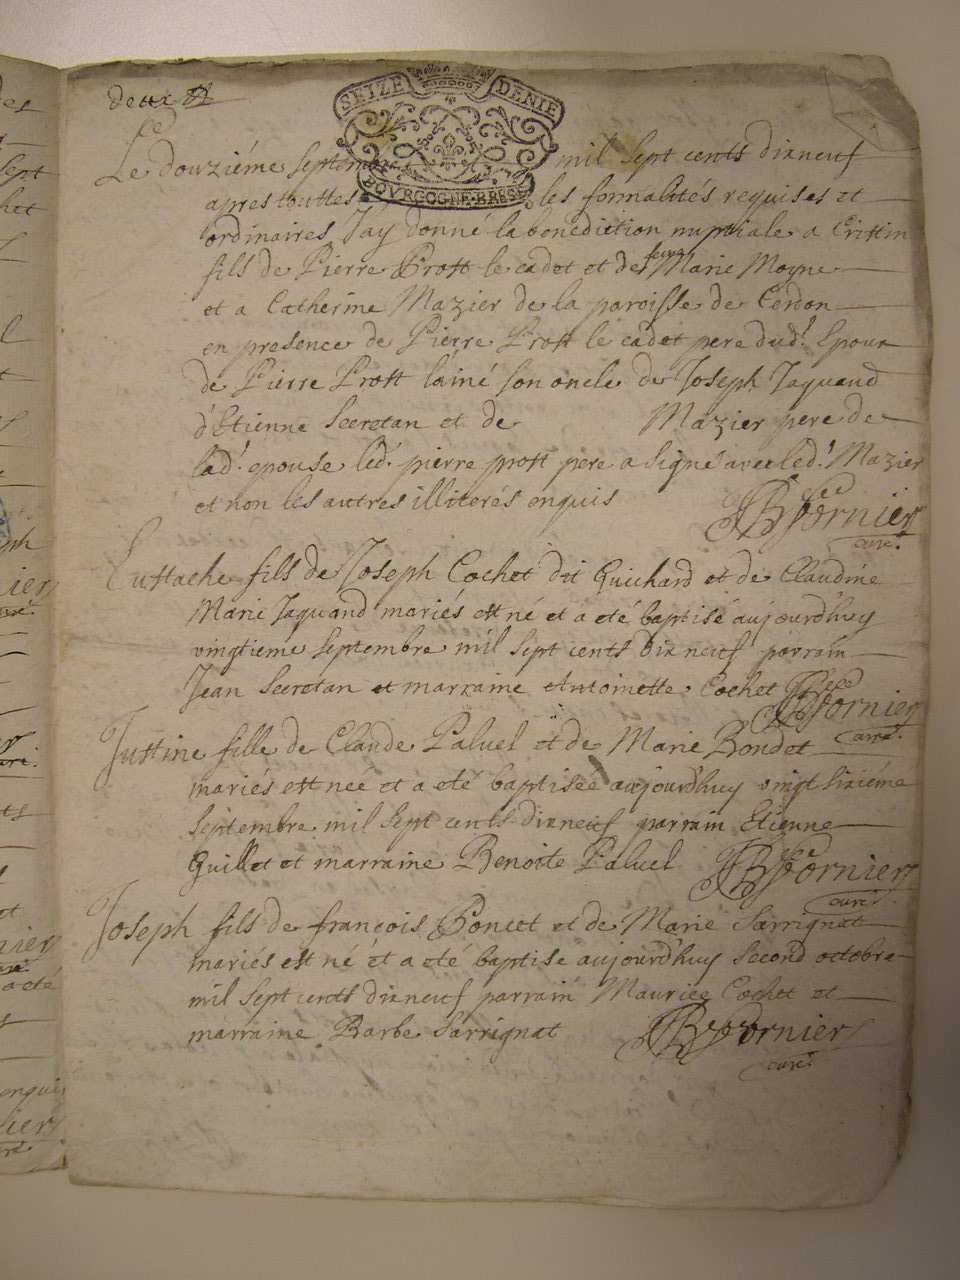 deux
SEIZE DENIE
BOVRGOGNE·BRESSE
Le douziéme septembre mil sept cents dixneuf
apres touttes les formalités requises et
ordinaires J'ay donné la benediction nuptiale a Cristin
fils de Pierre Prost le cadet et de feue Marie Moyne
et a Catherine Mazier de la paroisse de Cerdon
en presence de Pierre Prost le cadet pere dud! Epoux
de Pierre Prost lainé son oncle de Joseph Jaquand
d'Etienne Secretan et de Mazier pere de
lad! epouse led. pierre prost pere a signé avec led! Mazier
et non les autres illiterés enquis
JBFornier
curé
Eustache fils de Joseph Cochet dit Guichard et de Claudine
Marie Jaquand mariés est né et a eté baptisé aujourd'huy
vingtieme septembre mil sept cents dixneuf parrain
Jean Secretan et marraine Antoinette Cochet JBFornier
curé
Justine fille de Claude Paluel et de Marie Bondet
mariés est née et a eté baptisée aujourd'huy vingt sixiéme
septembre mil sept cents dixneuf parrain Etienne
Guillet et marraine Benoite Paluel JBFornier
curé
Joseph fils de françois Poncet et de Marie Sarrignat
mariés est né et a eté baptisé aujourd'huy second octobre
mil sept cents dixneuf parrain Maurice Cochet et
marraine Barbe Sarrignat JBFornier
curé